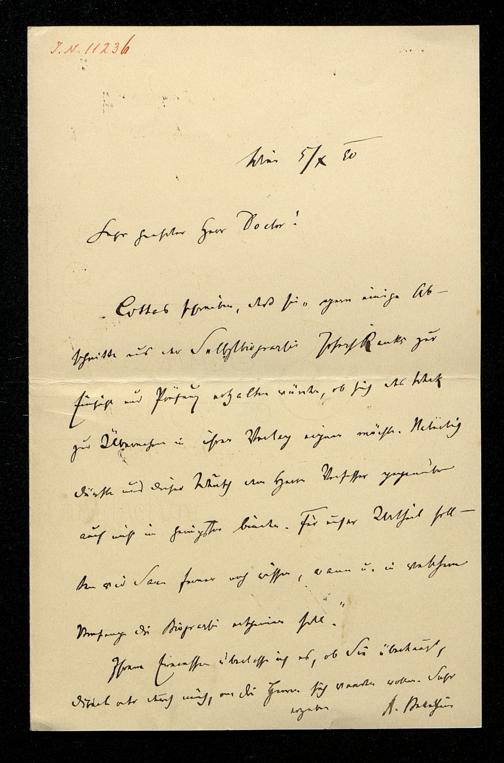 J.N. 11236
Wien 5/X 80
Sehr geehrter Herr Doctor!
Cottas schreiben, daß sie „gern einige Ab-
schnitte aus der Selbstbiographie Joseph Ranks zur
Einsicht und Prüfung erhalten würden, ob sich das Werk
zur Übernahme in ihren Verlag eignen möchte. Natürlich
dürfte uns dieser Wunsch dem Herrn Verfasser gegenüber
auch nicht im geringsten binden. Für unser Urtheil soll-
ten wir dann ferner noch wissen, wann u. in welchem
Umfange die Biographie erscheinen soll."
Ihrem Ermessen überlasse ich es, ob Sie überhaupt,
direkt oder durch mich, an die Herren sich wenden wollen. Sehr
ergeben
A.